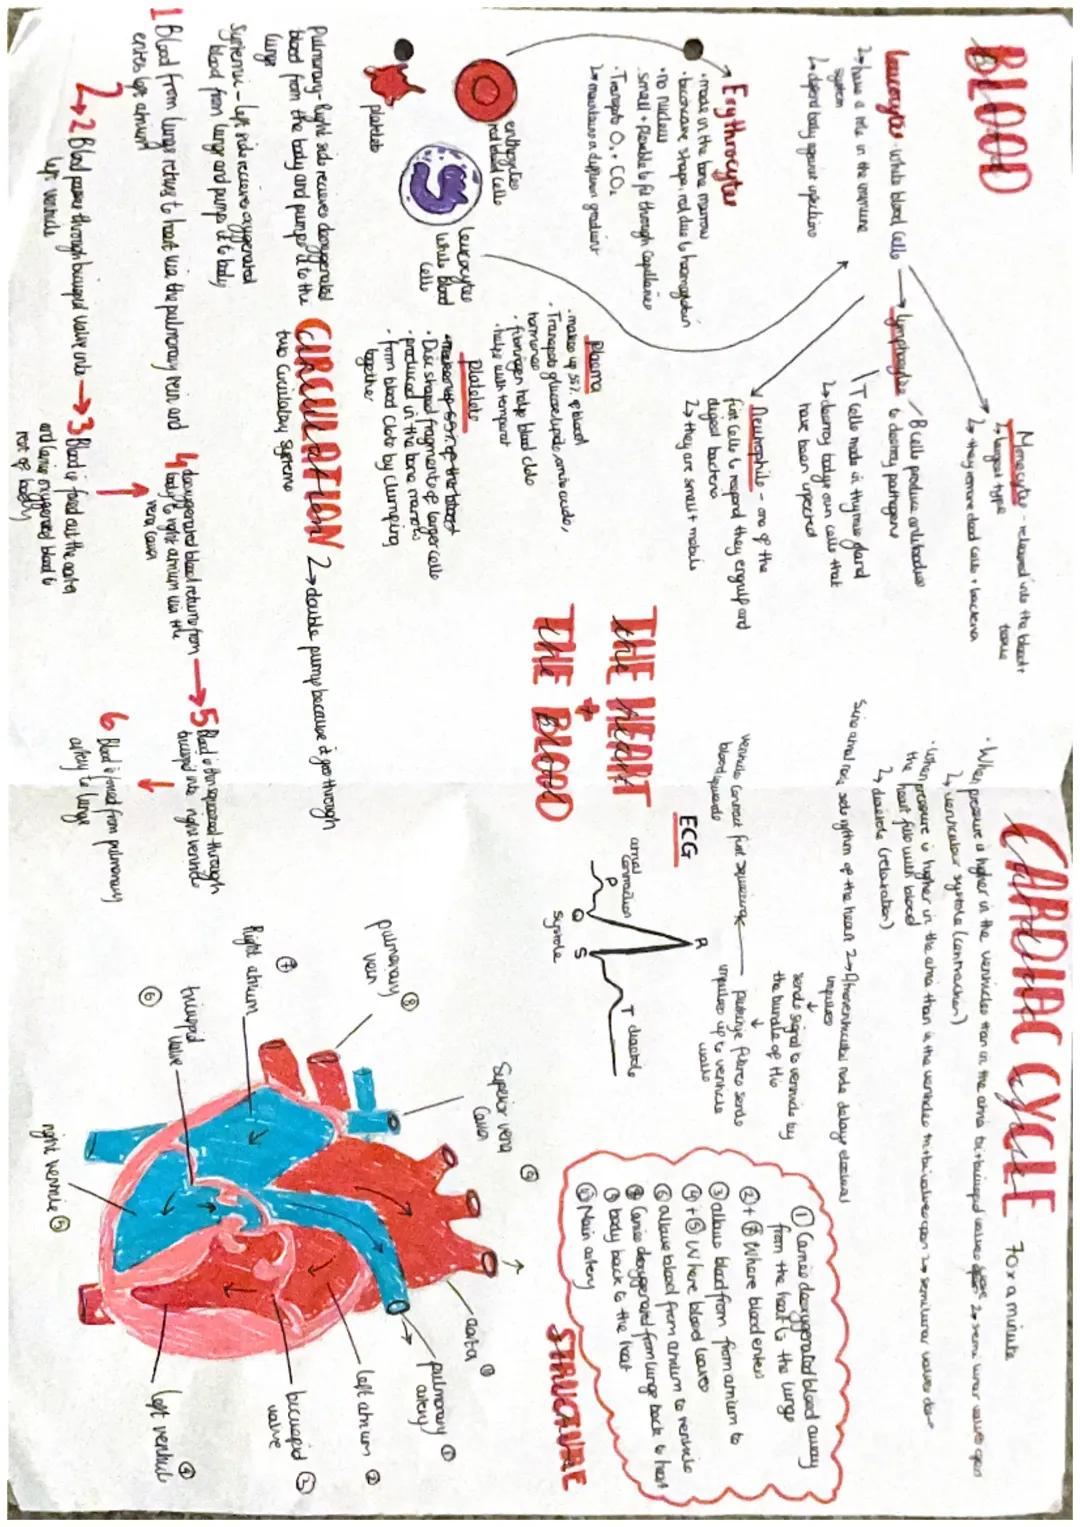 BLOOD
leucocytes - white blood cells
↳ have a role in the immune
system
↳ defend body against infections
Monocytes - released into the blood +
tissue
↳ largest type
↳ they remove dead cells + bacteria
lymphocytes
B cells produce antibodies
to destroy pathogens
T cells made in thymus gland
↳ destroy bodys own cells that
have been infected
Neutrophils - one of the
first cells to respond they engulf and
digest bacteria
↳ they are small + mobile
Erythrocytes
• made in the bone marrow
• biconcave shape, red due to haemoglobin
• no nucleus
• small + flexible to fit through capillaries
• Transports O₂ + CO₂
↳ maintains a diffusion gradient
red blood cells
leucocytes
white blood
cells
platelets
Plasma
• makes up 55% of blood
• Transports glucose, lipids, amino acids,
hormones
• fibrinogen helps blood clots
• helps with temperat
Platelets
• Disc shaped fragments of larger cells
• produced in the bone marrow
• form blood clots by clumping
together
THE HEART
+
THE BLOOD
CIRCULATION
↳ double pump because it goes through
two circulatory systems
Pulmonary - Right side recieves deoxygenated
blood from the body and pumps it to the
lungs
Systemic - left side recieves oxygenated
blood from lungs and pumps it to body
1 Blood from lungs returns to heart via the pulmonary vein and
enters left atrium
2 Blood passes through bicuspid valve into
left ventricle
3 Blood is forced out the aorta
and carries oxygenated blood to
rest of body
4 deoxygenated blood returns from
body to right atrium via the
vena cava
5 Blood is then squeezed through
tricuspid into right ventricle
6 Blood is forced from pulmonary
artery to lungs
CARDIAC CYCLE 70 x a minute
• When pressure is higher in the ventricles than in the atria
↳ ventricular systole (contraction)
• When pressure is higher in the atria than in the ventricles
the heart fills with blood
↳ diastole (relaxation)
Sino atrial node sets rythm of the heart
↳ Atrioventricular node delays electrical
impulses
sends signal to ventricles by
the bundle of His
purkinje fibres send
impulses up to ventricle
walls
ventricles contract first squeezing
blood upwards
ECG
atrial
contraction
P
Q
R
S
T
Systole
diastole
① Carries deoxygenated blood away
from the heart to the lungs
Where blood enters
③ allows blood from atrium to
④ + ⑤ Where blood leaves
⑥ allows blood from atrium to ventricle
body back to the heart
⑩ Main artery
STRUCTURE
pulmonary ⑧
vein
Superior vena ⑨
cava
Right atrium ⑦
tricuspid
valve ⑥
right ventricle ⑤
aorta ⑩
pulmonary ①
artery
left atrium ②
bicuspid ③
valve
left ventricle ④